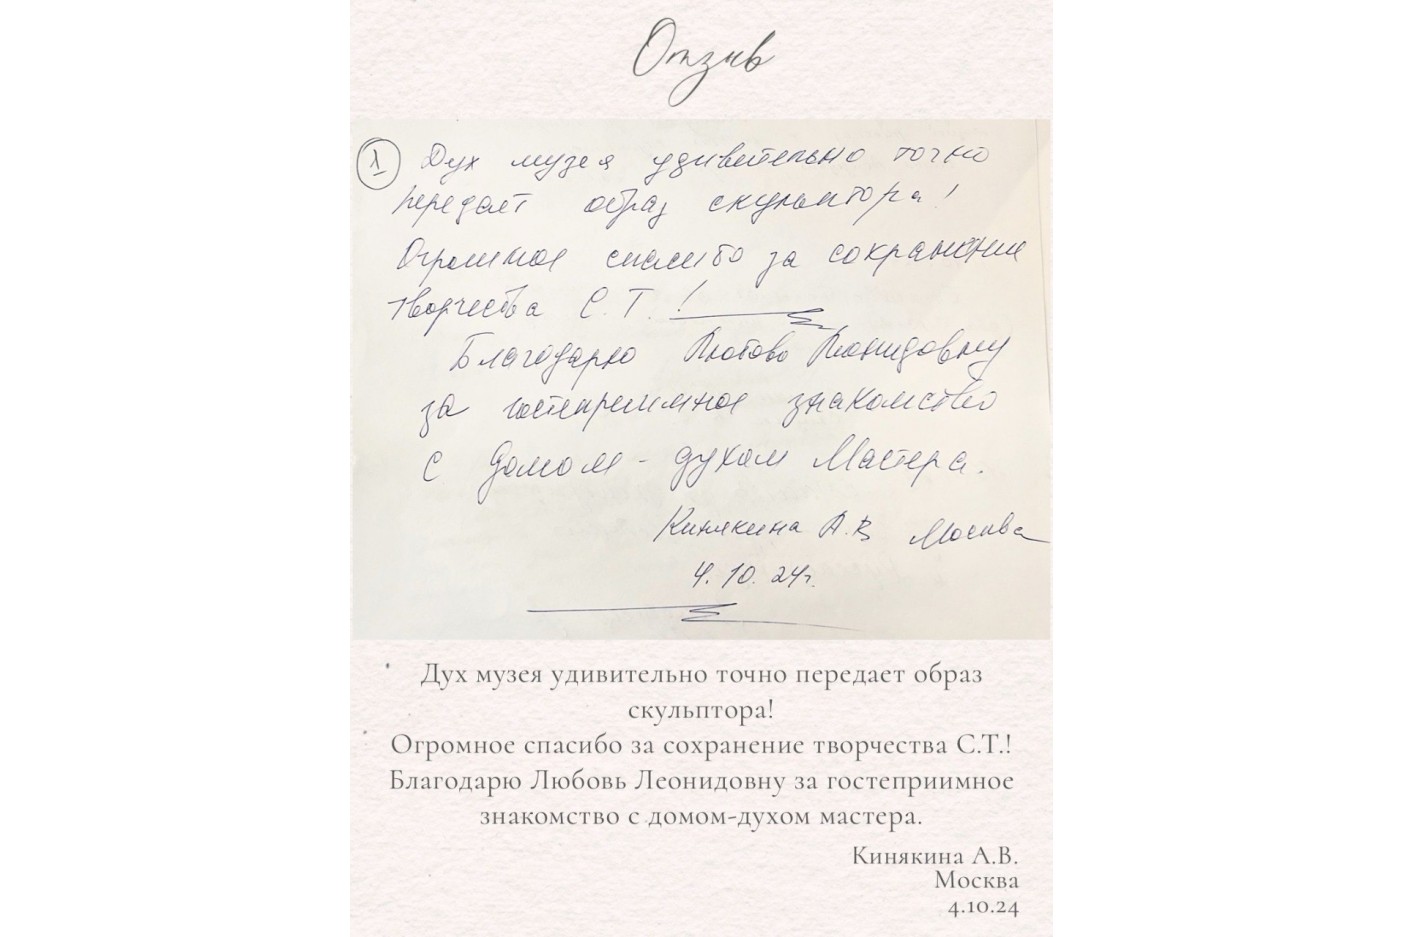 Отзыв
1 Дух музея удивительно точно
передает образ скульптора!
Огромное спасибо за сохранение
творчества С.Т.!
Благодарю Любовь Леонидовну
за гостеприимное знакомство
с домом-духом Мастера.
Кинякина А.В Москва
4.10.24г.
Дух музея удивительно точно передает образ
скульптора!
Огромное спасибо за сохранение творчества С.Т.!
Благодарю Любовь Леонидовну за гостеприимное
знакомство с домом-духом мастера.
Кинякина А.В.
Москва
4.10.24